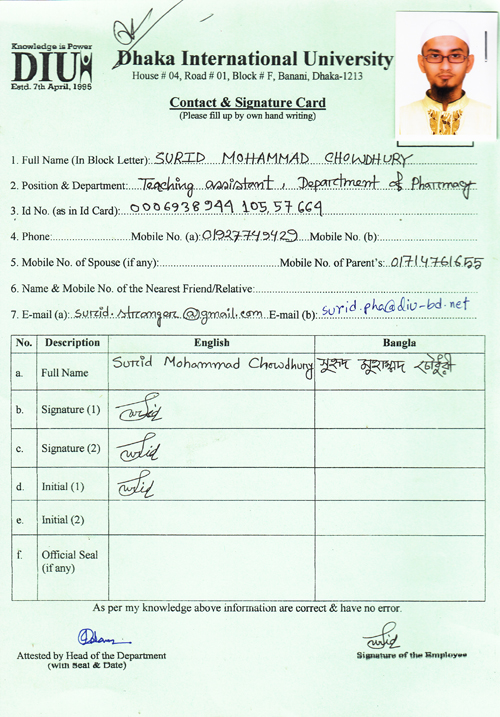 Knowledge is Power
DIU
Estd. 7th April, 1995
Dhaka International University
House # 04, Road # 01, Block # F, Banani, Dhaka-1213
Contact & Signature Card
(Please fill up by own hand writing)
1. Full Name (In Block Letter): SURID MOHAMMAD CHOWDHURY
2. Position & Department: Teaching assistant, Department of Pharmacy
3. Id No. (as in Id Card): 0006938944 105,57664
4. Phone: Mobile No. (a): 01927749429 Mobile No. (b):
5. Mobile No. of Spouse (if any): Mobile No. of Parent's: 01714761655
6. Name & Mobile No. of the Nearest Friend/Relative:
7. E-mail (a): surid.stranger@gmail.com E-mail (b): surid.pha@diu-bd.net
No. Description English Bangla
a. Full Name Surid Mohammad Chowdhury সুহৃদ মুহাম্মাদ চৌধুরী
b. Signature (1)
c. Signature (2)
d. Initial (1)
e. Initial (2)
f. Official Seal
(if any)
As per my knowledge above information are correct & have no error.
Attested by Head of the Department
(with Seal & Date)
Signature of the Employee